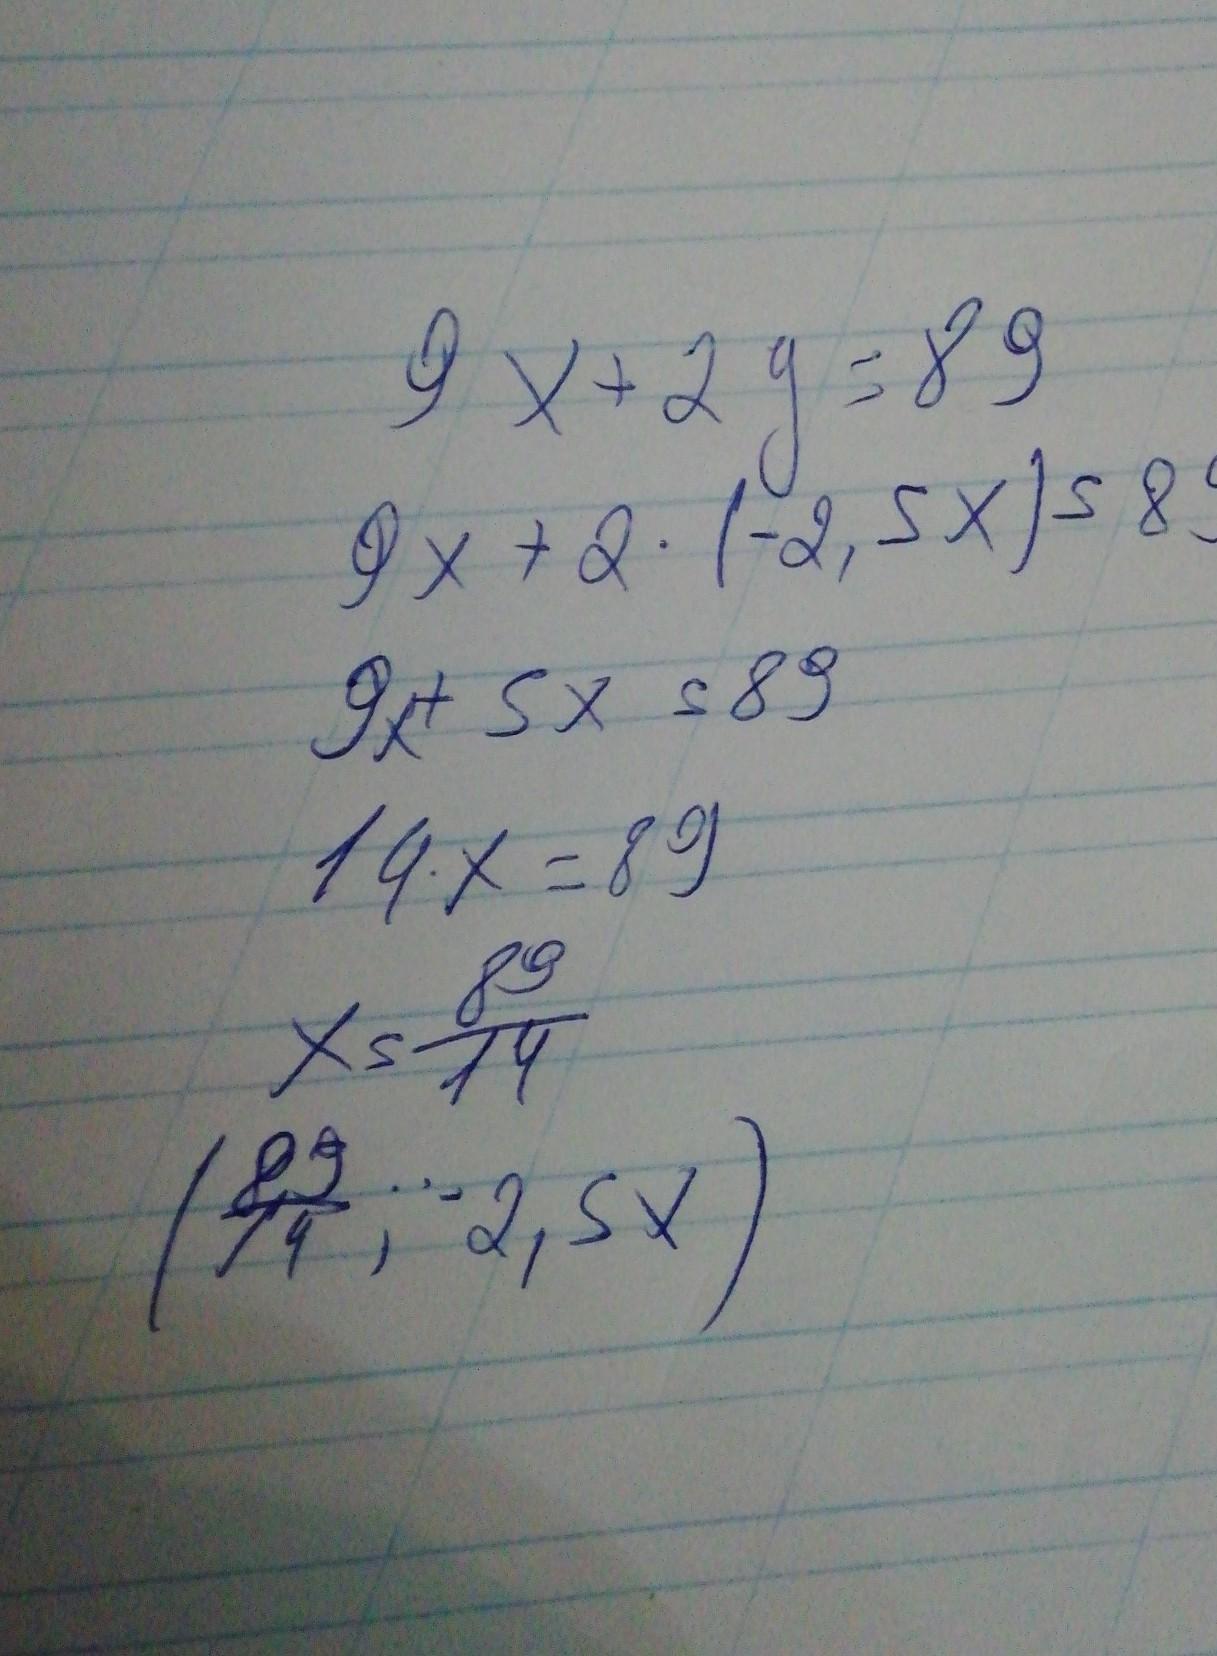 9x+2y=89
9x+2·(-2,5x)=89
9x+5x=89
14·x=89
x=89/14
(89/14; -2,5x)